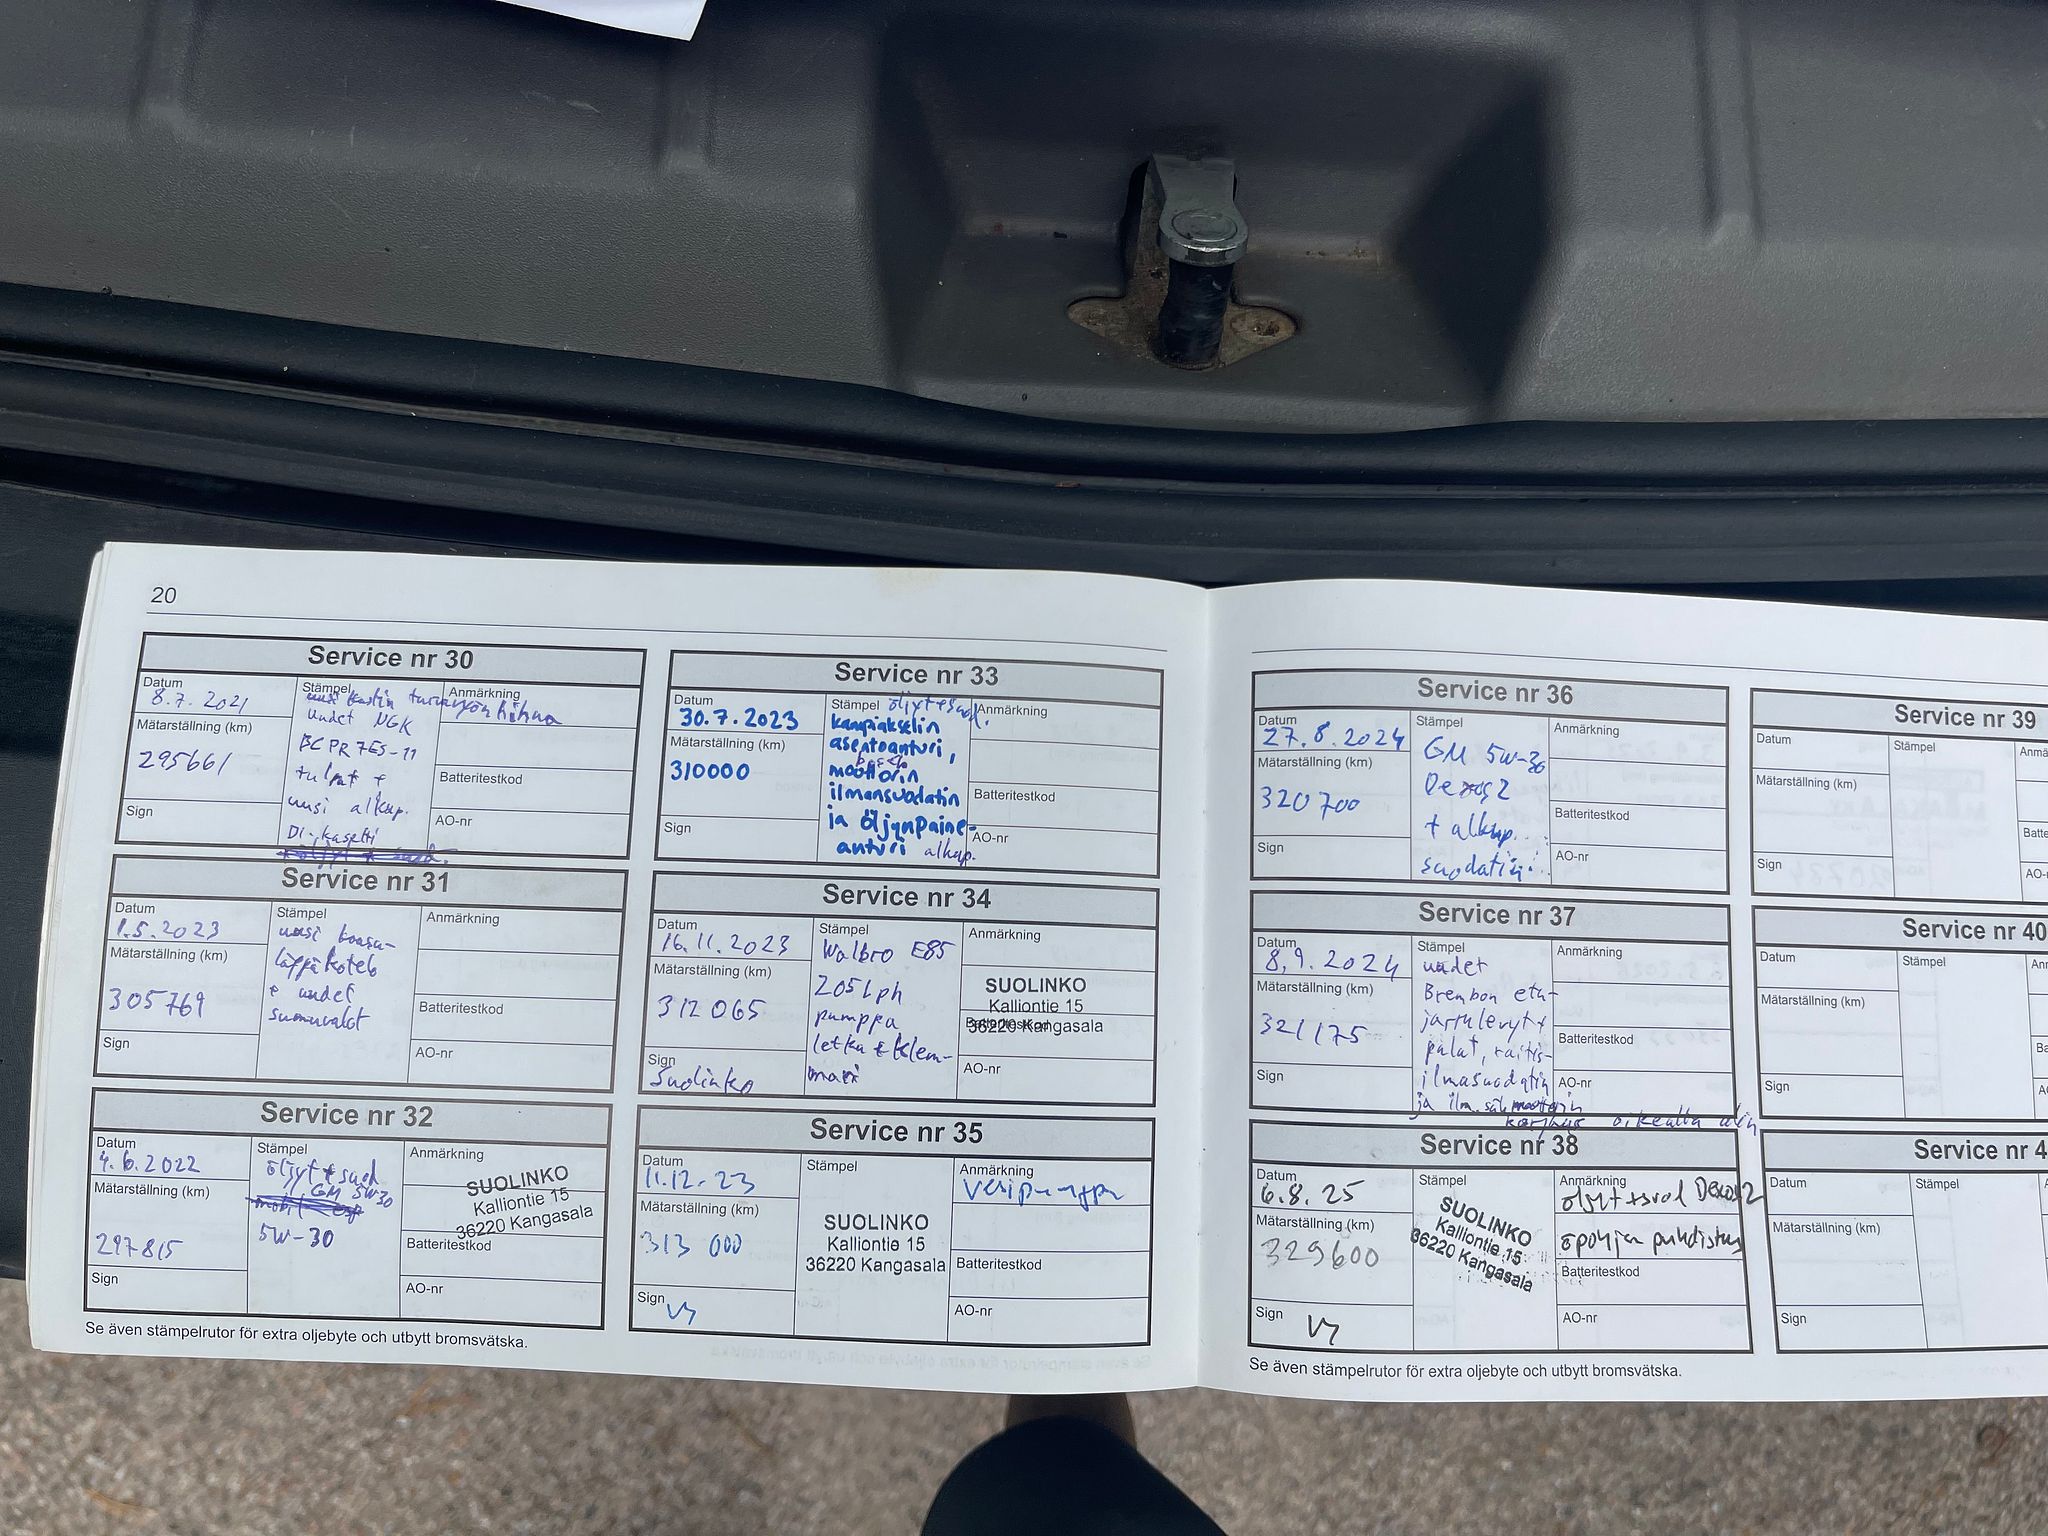 20
Service nr 30
Datum
8.7.2021
Mätarställning (km)
295661
Sign
Stämpel
uudet NGK
BCPR7ES-11
tulpat +
uusi alkup.
DI-kasetti
Anmärkning
Batteritestkod
AO-nr
Service nr 31
Datum
1.5.2023
Mätarställning (km)
305769
Sign
Stämpel
uusi kaasu-
läppäkotelo
+ uudet
sumuvalot
Anmärkning
Batteritestkod
AO-nr
Service nr 32
Datum
4.6.2022
Mätarställning (km)
297815
Sign
Stämpel
öljyt + suod
GM 5W30
5W-30
Anmärkning
SUOLINKO
Kalliontie 15
36220 Kangasala
Batteritestkod
AO-nr
Se även stämpelrutor för extra oljebyte och utbytt bromsvätska.
Service nr 33
Datum
30.7.2023
Mätarställning (km)
310000
Sign
Stämpel öljyt+suod.
kampiakselin
asentoanturi,
bosch
moottorin
ilmansuodatin
ja öljynpaine-
anturi alkup.
Anmärkning
Batteritestkod
AO-nr
Service nr 34
Datum
16.11.2023
Mätarställning (km)
312065
Sign
Suolinko
Stämpel
Walbro E85
205Lph
pumppu
letku + klem-
mari
Anmärkning
SUOLINKO
Kalliontie 15
Batteritestkod
36220 Kangasala
AO-nr
Service nr 35
Datum
11.12.23
Mätarställning (km)
313 000
Sign
Stämpel
SUOLINKO
Kalliontie 15
36220 Kangasala
Anmärkning
Vesipumppu
Batteritestkod
AO-nr
Service nr 36
Datum
27.8.2024
Mätarställning (km)
320700
Sign
Stämpel
GM 5W-30
Dexos2
+ alkup.
suodatin
Anmärkning
Batteritestkod
AO-nr
Service nr 37
Datum
8.9.2024
Mätarställning (km)
321175
Sign
Stämpel
uudet
Brembon etu-
jarrulevyt +
palat, raitis-
ilmasuodatin
ja ilm. säh moottorin
korjaus oikealta alin
Anmärkning
Batteritestkod
AO-nr
Service nr 38
Datum
6.8.25
Mätarställning (km)
329600
Sign
Stämpel
SUOLINKO
Kalliontie 15
36220 Kangasala
Anmärkning
öljyt+suod Dexos2
öpohjan puhdistus
Batteritestkod
AO-nr
Se även stämpelrutor för extra oljebyte och utbytt bromsvätska.
Service nr 39
Datum
Mätarställning (km)
Sign
Stämpel
Service nr 40
Datum
Mätarställning (km)
Sign
Stämpel
Service nr 4
Datum
Mätarställning (km)
Sign
Stämpel